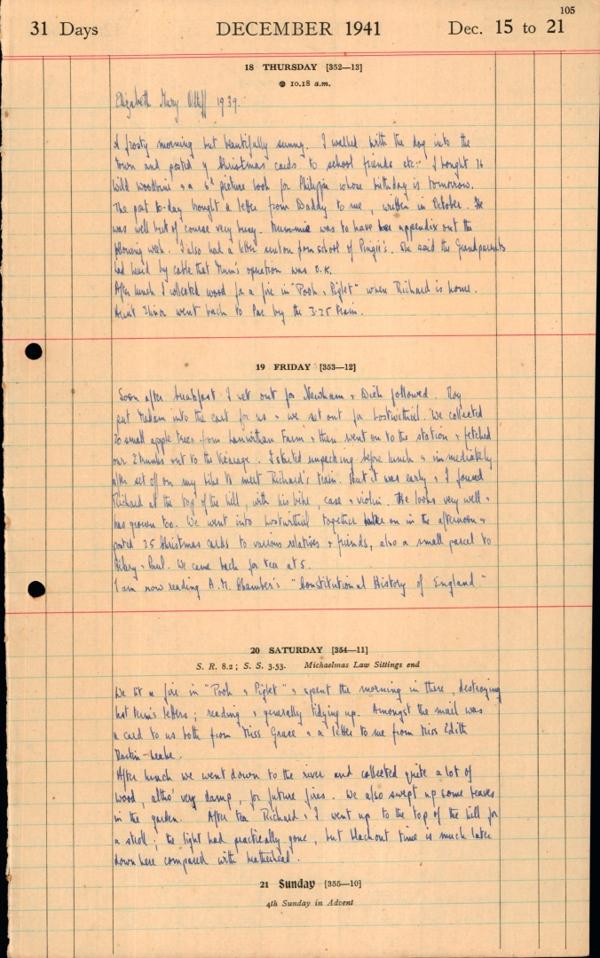 105
31 Days DECEMBER 1941 Dec. 15 to 21
18 THURSDAY [352—13]
10.18 a.m.
Elizabeth Mary 1939.
A frosty morning but beautifully sunny. I walked with the dog into the
town and posted 4 Christmas cards to school friends etc: I bought 16
Wild Woodbine + a 6d picture book for Philippa whose birthday is tomorrow.
The post to-day brought a letter from Daddy to me, written in October. He
was well but of course very busy. Mummie was to have her appendix out the
following week. I also had a letter from school of Pingie's. She said the Grandparents
had heard by cable that Mum's operation was O.K.
After lunch I collected wood for a fire in "Pooh + Piglet" when Richard is home.
Aunt Elinor went back to Par by the 3.25 train.
19 FRIDAY [353—12]
Soon after breakfast I set out for Newham + Dick followed. Roy
put Madam into the cart for us + we set out for Lostwithiel. We collected
20 small apple trees from Lanwithan Farm + then went on to the station + fetched
our 2 trunks out to the Vicarage. I started unpacking before lunch + immediately
after set off on my bike to meet Richard's train. But it was early + I found
Richard at the top of the hill, with his bike, case + violin. He looks very well +
has grown too. We went into Lostwithiel together later on in the afternoon +
posted 35 Christmas cards to various relatives + friends, also a small parcel to
Hilary + Paul. We came back for tea at 5.
I am now reading A.M. Chamber's "Constitutional History of England."
20 SATURDAY [354—11]
S. R. 8.2; S. S. 3.53. Michaelmas Law Sittings end
We lit a fire in "Pooh + Piglet" + spent the morning in there, destroying
last term's letters; reading + generally tidying up. Amongst the mail was
a card to us both from Miss Grace + a letter to me from Miss Edith
Martin-Leake.
After lunch we went down to the river and collected quite a lot of
wood, altho' very damp, for future fires. We also swept up some leaves
in the garden. After tea Richard + I went up to the top of the hill for
a stroll; the light had practically gone, but blackout time is much later
down here compared with Leatherhead.
21 Sunday [355—10]
4th Sunday in Advent